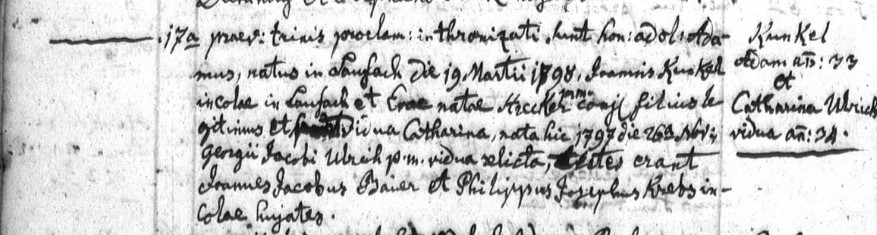 17a praev: trinis proclam: inthronizati sunt hon: adol: Ada-
mus, natus in Laufach die 19 Martii 1798, Joannis Kunkel
incolae in Laufach et Evae natae conj: filius le
gitimus et vidua Catharina, nata hic 1797 die 26 Nov:;
Georgii Jacobi Ulrich p.m. vidua relicta; testes erant
Joannes Jacobus Baier et Philippus Josephus Krebs in-
colae hujates.
Kunkel
Adam an: 33
et
Catharina Ulrich
vidua an: 34.